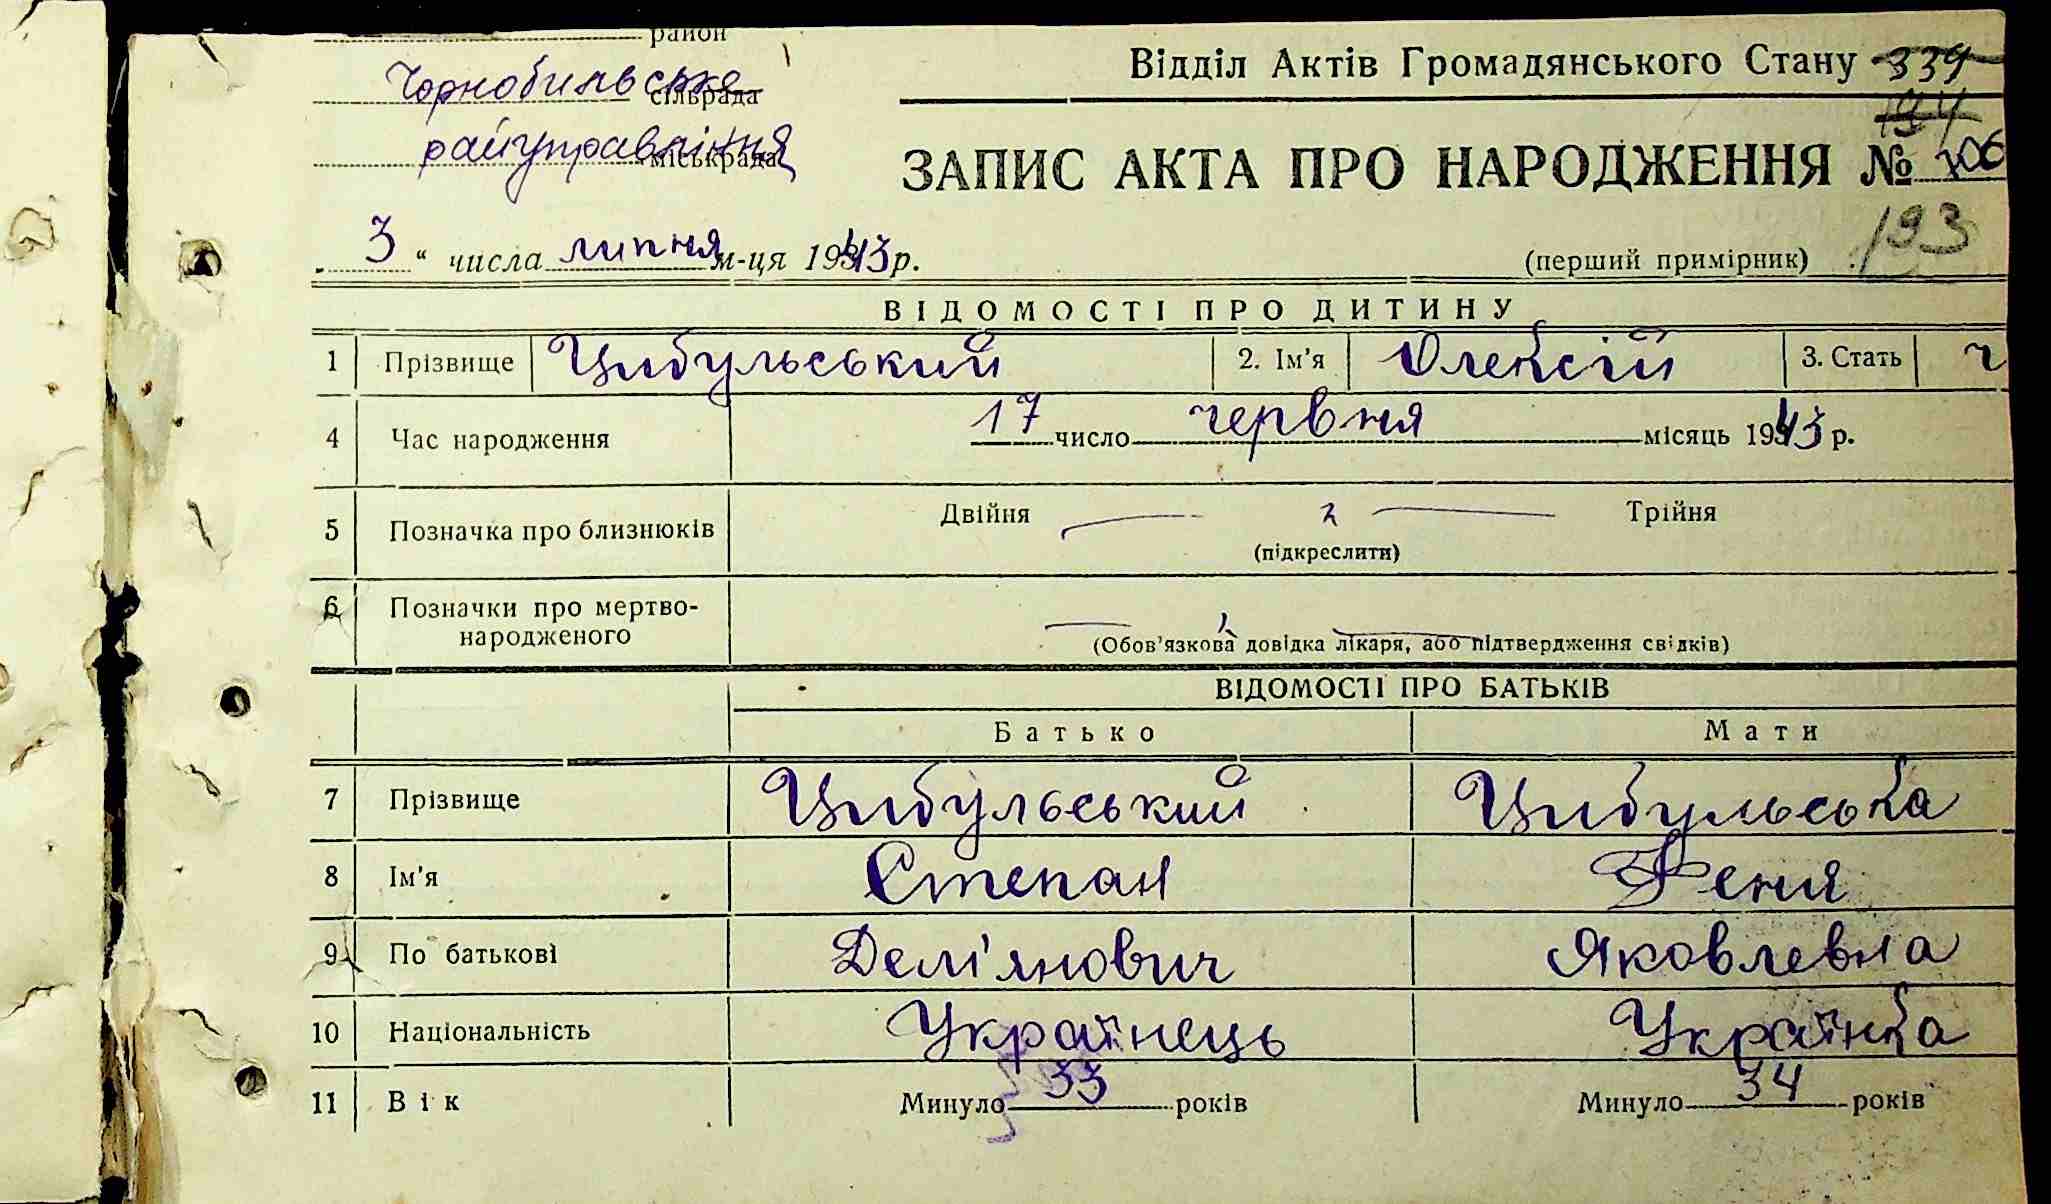 район
Чорнобильське сільрада
райуправління міськрада
Відділ Актів Громадянського Стану 339
194
ЗАПИС АКТА ПРО НАРОДЖЕННЯ № 106
193
3 “ числа липня м-ця 1943 р.
(перший примірник)
ВІДОМОСТІ ПРО ДИТИНУ
1 Прізвище Цибульський 2. Ім'я Олексій 3. Стать ч
4 Час народження 17 число червня місяць 1943 р.
5 Позначка про близнюків Двійня Трійня
(підкреслити)
6 Позначки про мертво-
народженого
(Обов'язкова довідка лікаря, або підтвердження свідків)
ВІДОМОСТІ ПРО БАТЬКІВ
Батько Мати
7 Прізвище Цибульський Цибульська
8 Ім'я Степан Феня
9 По батькові Дем'янович Яковлевна
10 Національність Українець Українка
11 Вік Минуло 33 років Минуло 34 років